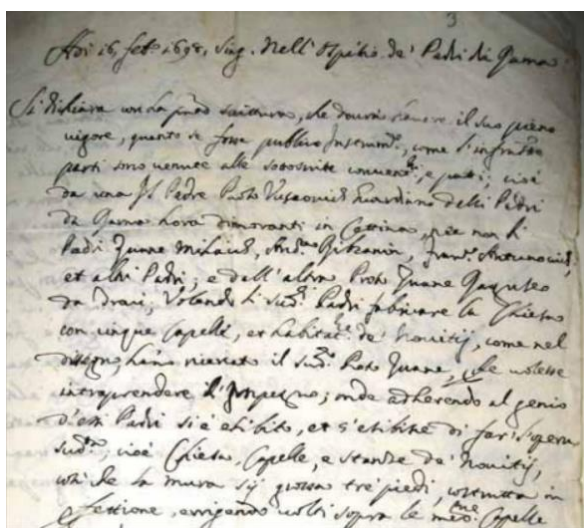 3
Adi 16, feb.o 1698, Sing. Nell' Ospitio de' Padri di Rama
Si dichiara con la pnte scrittura, che dovrà havere il suo pieno
vigore, quanto se fosse publico Instrum.to, come l'infratte
parti sono venute alle sottoscritte convent.i, e patti; cioè
da una Il Padre Guardiano delli Padri
da Rama hora dimoranti in Cettina, nec non li
Padri Zuane
et altri Padri; e dall'altra Proto Zuane
da Volendo li sud.i Padri fabricare la Chiesa
con cinque Capelle, et habitat.e de' Novitij, come nel
dissegno, hano ricercato il sud.o Proto Zuane, che volesse
intraprendere l'Impegno; onde adherendo al genio
d'essi Padri si è esibito, et s'esibisce di far l'opera
sud.a, cioè Chiesa, Capelle, e stanze de' Novitij,
con che la mura sij grossa tre piedi, costrutta in
erigendo volti sopra le Capelle